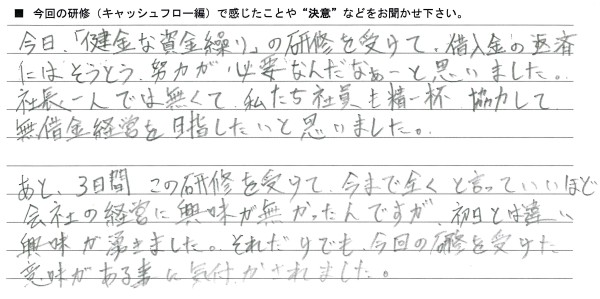 ■ 今回の研修（キャッシュフロー編）で感じたことや“決意”などをお聞かせ下さい。
今日、「健全な資金繰り」の研修を受けて、借入金の返済
にはそうとう努力が必要なんだなぁーと思いました。
社長一人では無くて、私たち社員も精一杯 協力して
無借金経営を目指したいと思いました。
あと、3日間 この研修を受けて、今まで全くと言っていいほど
会社の経営に興味が無かったんですが、初日とは違い
興味が湧きました。それだけでも、今回の研修を受けた
意味がある事に気付かされました。